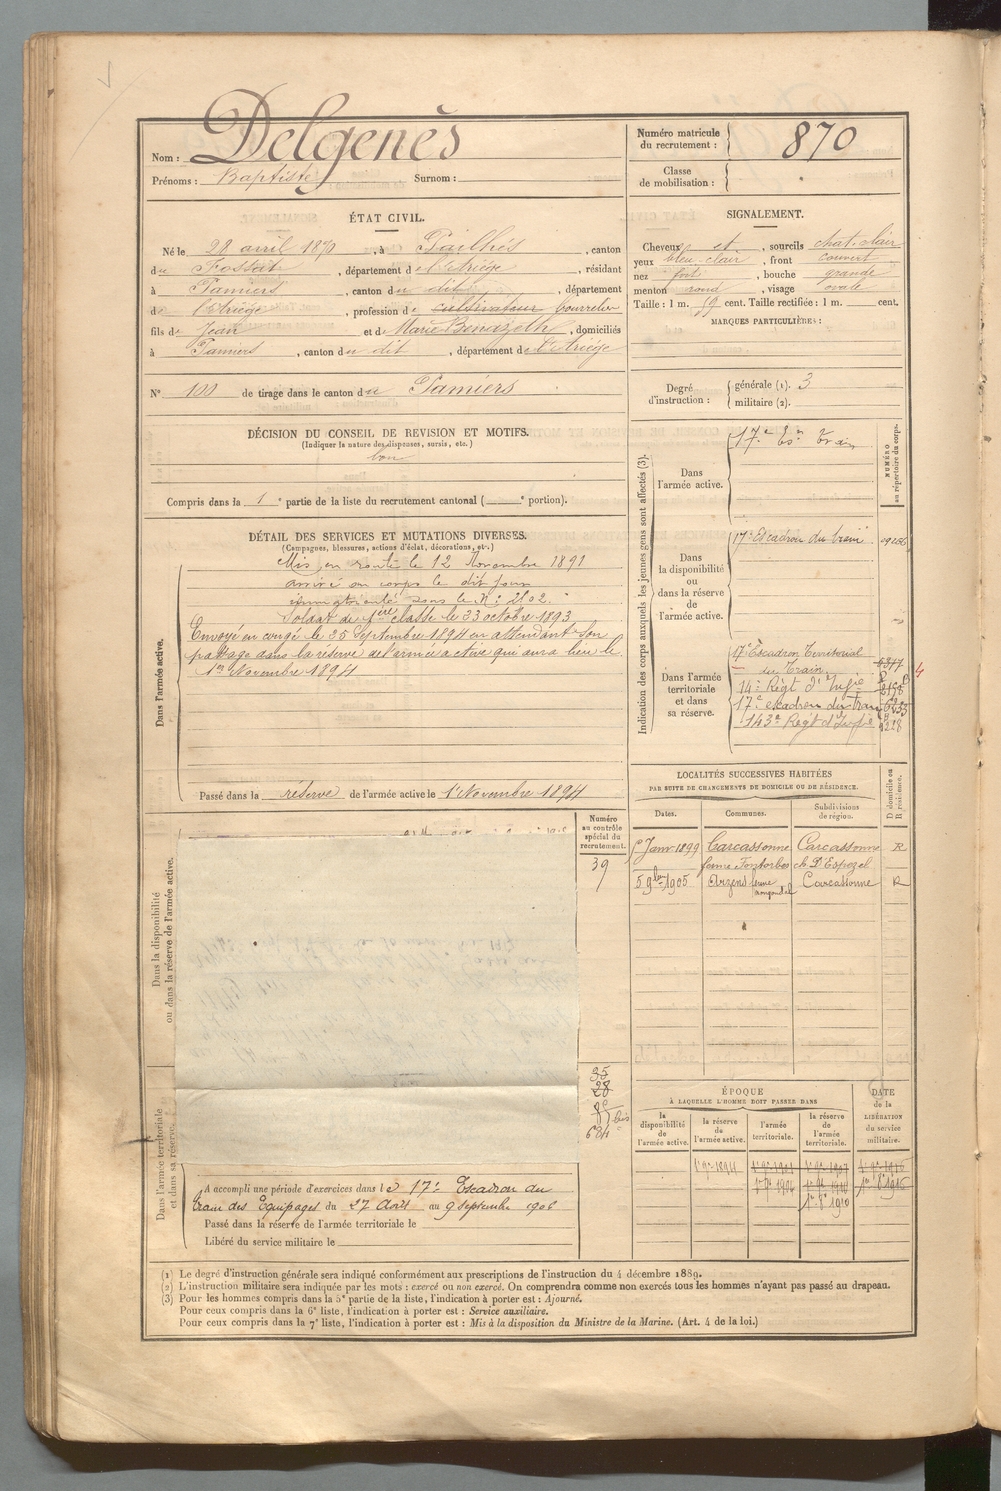 Nom : Delgenès
Prénoms : Baptiste Surnom :
Numéro matricule du recrutement : 870
Classe de mobilisation :
ÉTAT CIVIL.
Né le 28 avril 1870, à Pailhès, canton
du Fossat, département de l'Ariège, résidant
à Pamiers, canton du dit, département
de l'Ariège, profession de cultivateur bourrelier
fils de Jean et de Marie Benazeth, domiciliés
à Pamiers, canton du dit, département de l'Ariège
N° 100 de tirage dans le canton de Pamiers
SIGNALEMENT.
Cheveux et, sourcils chat. clair
yeux bleu-clair, front couvert
nez fort, bouche grande
menton rond, visage ovale
Taille : 1 m. 59 cent. Taille rectifiée : 1 m. cent.
MARQUES PARTICULIÈRES :
Degré d'instruction : générale (1). 3
militaire (2).
DÉCISION DU CONSEIL DE REVISION ET MOTIFS.
(Indiquer la nature des dispenses, sursis, etc.)
bon
Compris dans la 1e partie de la liste du recrutement cantonal ( e portion).
DÉTAIL DES SERVICES ET MUTATIONS DIVERSES.
(Campagnes, blessures, actions d'éclat, décorations, etc.)
Dans l'armée active.
Mis en route le 12 Novembre 1891
arrivé au corps le dit jour
immatriculé sous le N° 2102.
Soldat de 1ère classe le 33 octobre 1893
Envoyé en congé le 25 Septembre 1894 en attendant son
passage dans la réserve de l'armée active qui aura lieu le
1er Novembre 1894
Passé dans la réserve de l'armée active le 1er Novembre 1894
Indication des corps auxquels les jeunes gens sont affectés (3).
NUMÉRO au répertoire du corps.
Dans l'armée active.
17e Eson Train
Dans la disponibilité ou dans la réserve de l'armée active.
17e Escadron du train
Dans l'armée territoriale et dans sa réserve.
17e Escadron Territorial
du Train
14e Régt d'Infie
17e escadron du train
143e Régt d'Infie
4
LOCALITÉS SUCCESSIVES HABITÉES
PAR SUITE DE CHANGEMENTS DE DOMICILE OU DE RÉSIDENCE.
D domicile ou R résidence.
Dates. Communes. Subdivisions de région.
Janv 1899 Carcassonne Carcassonne R
ferme Fontorbes ch D'Espezel
5 9bre 1905 Arzens ferme Carcassonne R
Numéro au contrôle spécial du recrutement.
39
35
28
85 bis
684
Dans la disponibilité ou dans la réserve de l'armée active.
Dans l'armée territoriale et dans sa réserve.
ÉPOQUE
À LAQUELLE L'HOMME DOIT PASSER DANS
DATE de la LIBÉRATION du service militaire.
la disponibilité de l'armée active.
la réserve de l'armée active.
l'armée territoriale.
la réserve de l'armée territoriale.
A accompli une période d'exercices dans le 17e Escadron du
train des Equipages du 27 Août au 9 septembre 1906
Passé dans la réserve de l'armée territoriale le
Libéré du service militaire le
(1) Le degré d'instruction générale sera indiqué conformément aux prescriptions de l'instruction du 4 décembre 1889.
(2) L'instruction militaire sera indiquée par les mots : exercé ou non exercé. On comprendra comme non exercés tous les hommes n'ayant pas passé au drapeau.
(3) Pour les hommes compris dans la 5e partie de la liste, l'indication à porter est : Ajourné.
Pour ceux compris dans la 6e liste, l'indication à porter est : Service auxiliaire.
Pour ceux compris dans la 7e liste, l'indication à porter est : Mis à la disposition du Ministre de la Marine. (Art. 4 de la loi.)